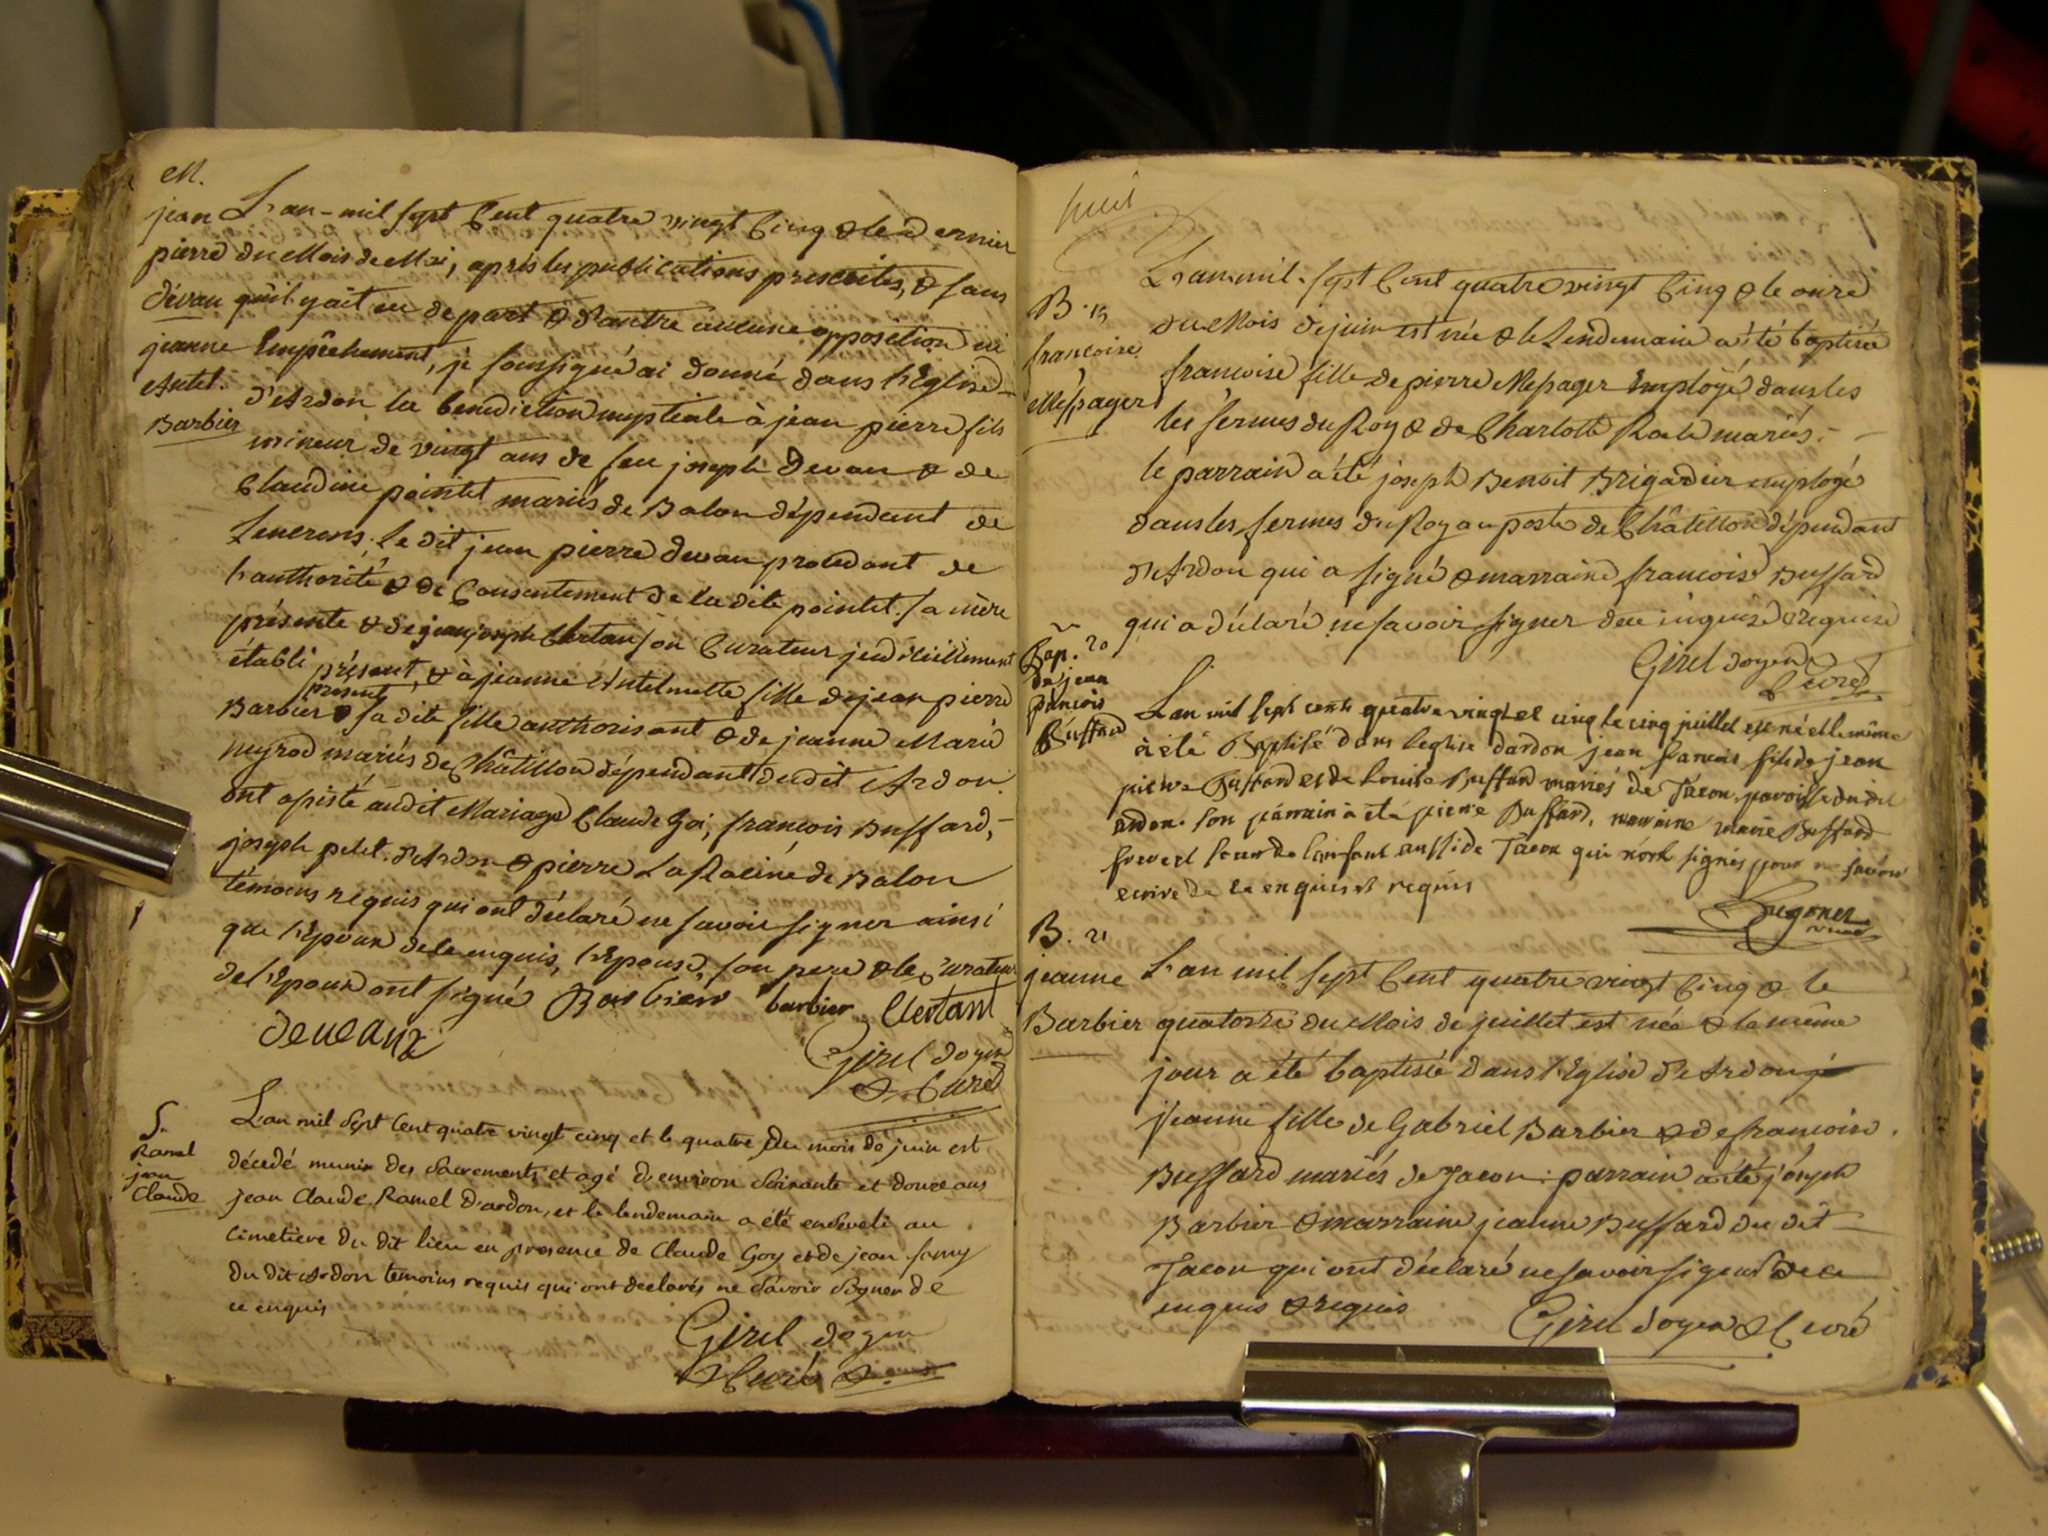 M.
jean
pierre
Devau
jeanne
Antel.
Barbier
L'an mil sept Cent quatre vingt Cinq & le dernier
du Mois de Mai, après les publications prescrites, & sans
qu'il y ait eu de part & d'autre aucune opposition ni
Empêchement, je soussigné ai donné dans l'Eglise
d'Ardon la benediction nuptiale à jean pierre fils
mineur de vingt ans de feu joseph Devau & de
Claudine pointet mariés de Balon dépendant de
Lenerons. Le dit jean pierre devau procedant de
l'authorité & de Consentement de la dite pointet sa mère
présente & de jean joseph Chertan son Curateur judiciellement
établi présent, & à jeanne Antelmette fille de jean pierre
present
Barbier & sa dite fille authorisant & de jeanne Marie
neyrod mariés de Châtillon dépendant du dit Ardon.
ont assisté audit Mariage Claude Goi, francois Buffard,
joseph petit d'Ardon & pierre La Racine de Balon
témoins requis qui ont déclaré ne savoir signer ainsi
que l'Epoux de le enquis, l'Epouse, son pere & le Curateur
de l'Epoux ont signé Barbier barbier Clertant
deveaux
Girel doyen
& Curé
S.
Ramel
jean
Claude
L'an mil Sept Cent quatre vingt cinq et le quatre du mois de juin est
décedé munir des Sacrements et agé d'environ Soixante et douze ans
jean Claude Ramel d'ardon, et le lendemain a été enseveli au
Cimetière du dit lieu en presence de Claude Goy et de jean
du dit Ardon temoins requis qui ont declarés ne Savoir Signer de
ce enquis
Girel doyen
& Curé
huit
B. 19
francoise
Messager
L'an mil sept Cent quatre vingt Cinq & le onze
du Mois de juin est née & le Lendemain a été baptisée
francoise fille de pierre Messager Employé dans les
les fermes du Roy & de Charlotte mariés.
le parrain a été joseph Benoit Brigardier employé
dans les fermes du Roy au poste de Châtillon dépendant
d'Ardon qui a signé & marraine francoise Buffard
qui a déclaré ne savoir signer de ce inquise & requise
Girel doyen &
Curé
Bap. 20
de jean
francois
Buffard
L'an mil sept cents quatre vingt et cinq le cinq juillet est né et le même
a été Baptisé dans leglise dardon jean francois fils de jean
pierre Buffard et de Louise Buffard mariés de Tacon paroisse du dit
ardon. son parrain a été pierre Buffard, marraine marie Buffard
frere et soeur de l'enfant aussi de Tacon qui n'ont signés pour ne savoir
ecrire de ce enquis et requis
B. 21
jeanne
Barbier
L'an mil sept Cent quatre vingt Cinq & le
quatorze du Mois de juillet est née & le même
jour a été baptisée dans l'Eglise d'Ardon
jeanne fille de Gabriel Barbier & de francoise
Buffard mariés de Tacon. parrain a été joseph
Barbier & marraine jeanne Buffard du dit
Tacon qui ont déclaré ne savoir signer de ce
enquis & requis
Girel doyen & Curé